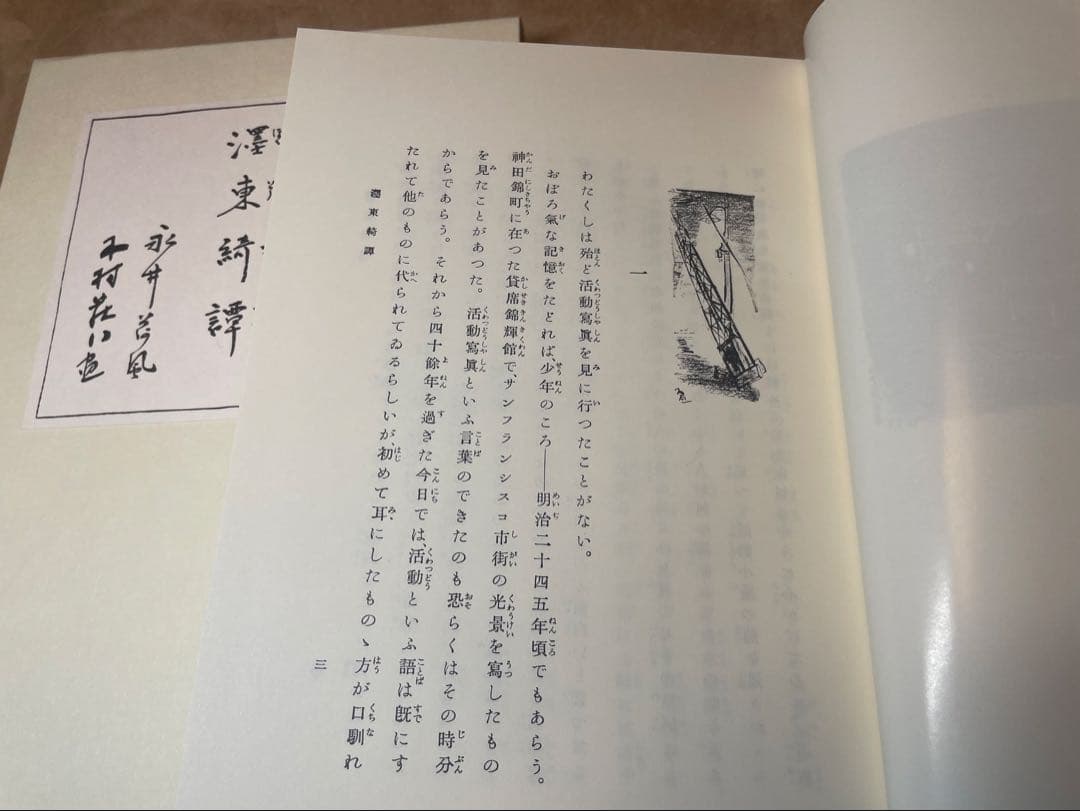 一
わたくしは殆ど活動寫眞を見に行つたことがない。
おぼろ氣な記憶をたどれば、少年のころ――明治二十四五年頃でもあらう。
神田錦町に在つた貸席錦輝館で、サンフランシスコ市街の光景を寫したもの
を見たことがあつた。活動寫眞といふ言葉のできたのも恐らくはその時分
からであらう。それから四十餘年を過ぎた今日では、活動といふ語は既にす
たれて他のものに代られてゐるらしいが、初めて耳にしたものゝ方が口馴れ
濹東綺譚
三
濹東綺譚
永井荷風
木村荘八画